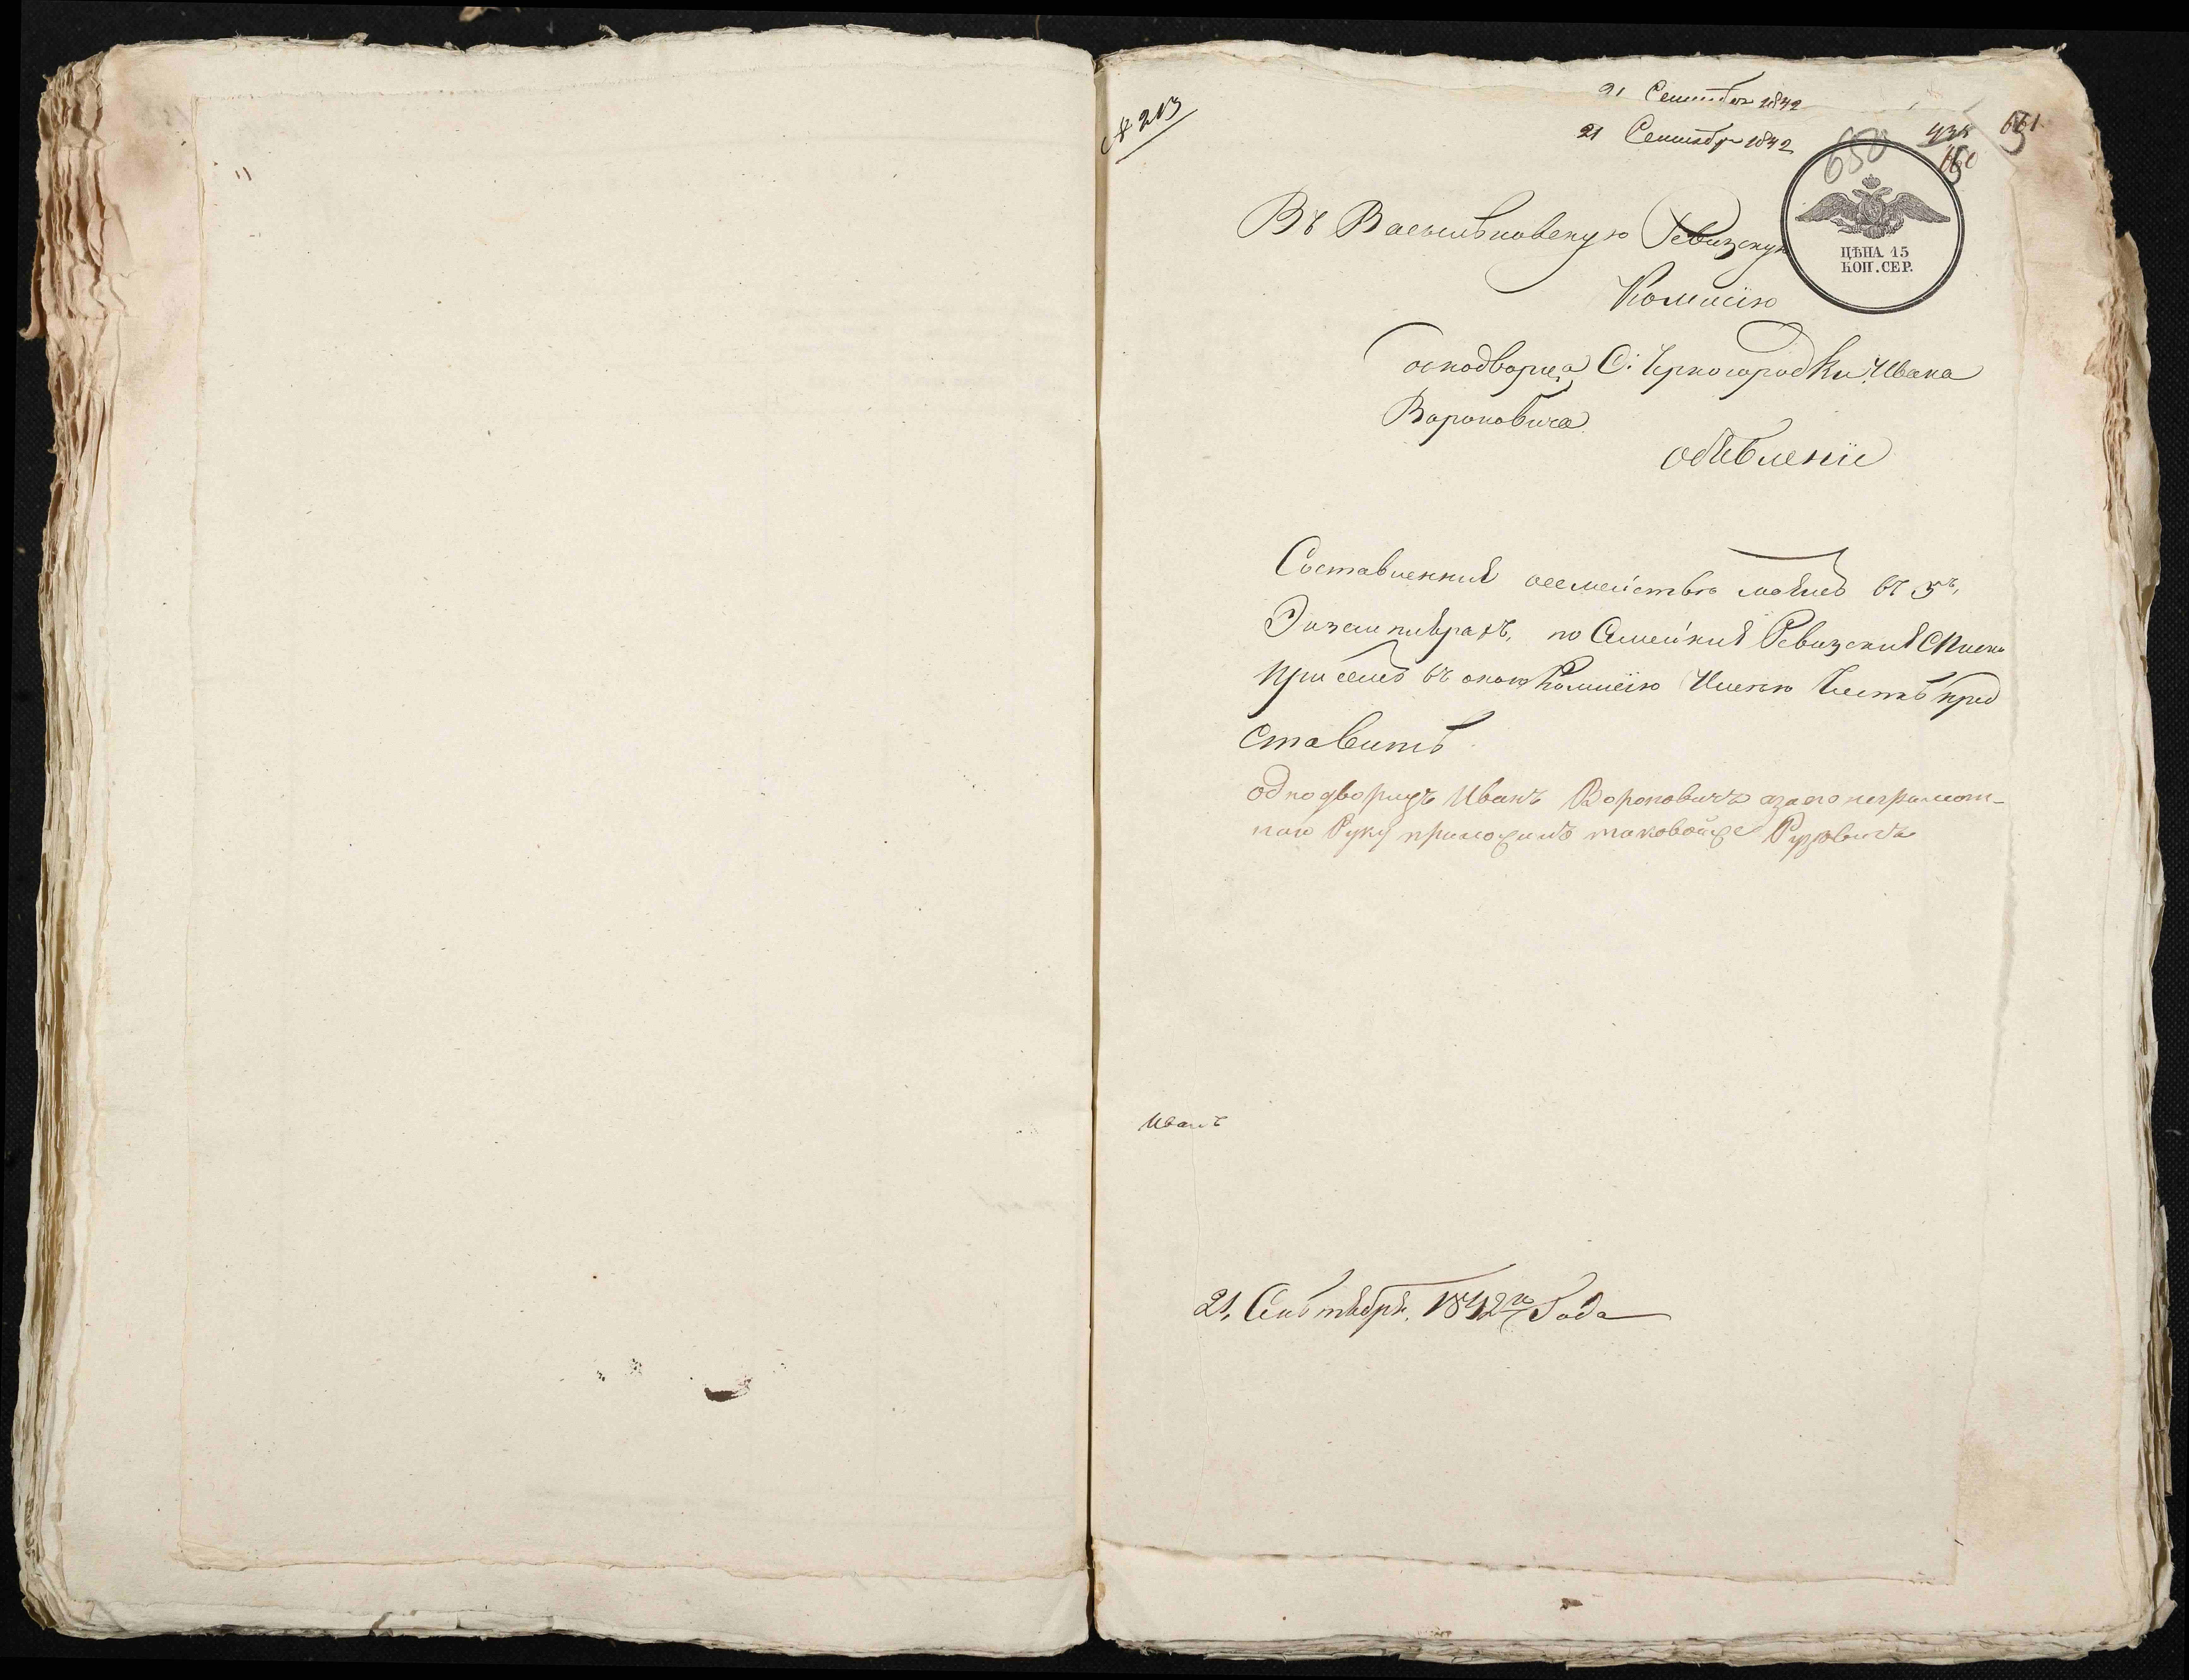 № 213
21 Сентября 1842
21 Сентября 1842
661
650
650
Въ Васильковскую Ревизскую
ЦѢНА 15
КОП. СЕР.
Комисію
однодворца С: Черногородки Ивана
Вороновича
обявленіе
Составленнія осемействѣ моемъ въ 5ъ,
Экземплярахъ, по Семейнія Ревизскія Списки
При семъ въ оную Комисію Имею Честь пред
Ставить
однодворецъ Иванъ Вороновичъ азаего неграмот-
наго Руку приложилъ таковойже
Иванъ
21, Сентября, 1842го Года